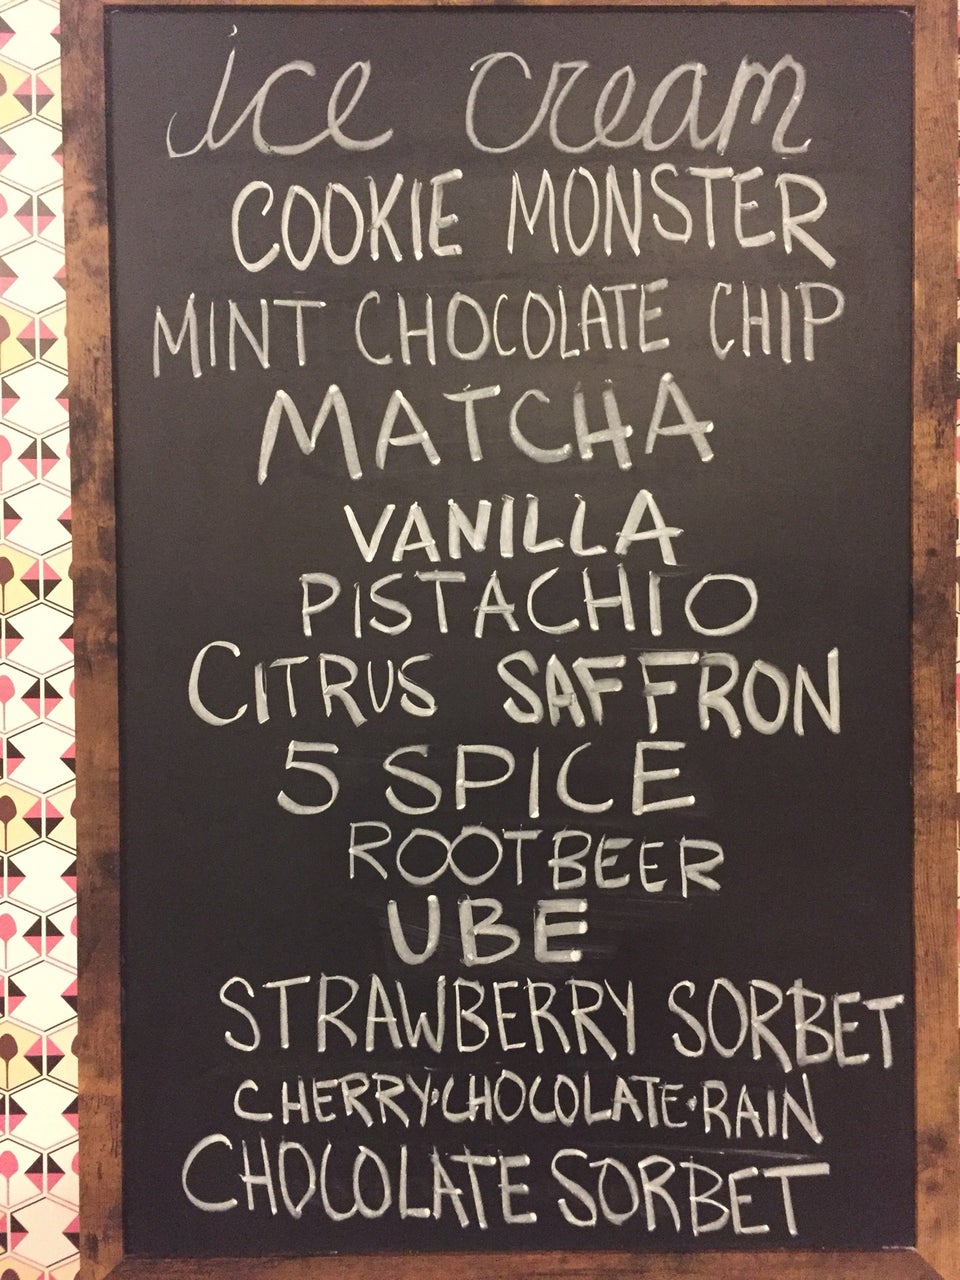 ice cream
COOKIE MONSTER
MINT CHOCOLATE CHIP
MATCHA
VANILLA
PISTACHIO
CITRUS SAFFRON
5 SPICE
ROOTBEER
UBE
STRAWBERRY SORBET
CHERRY·CHOCOLATE·RAIN
CHOCOLATE SORBET